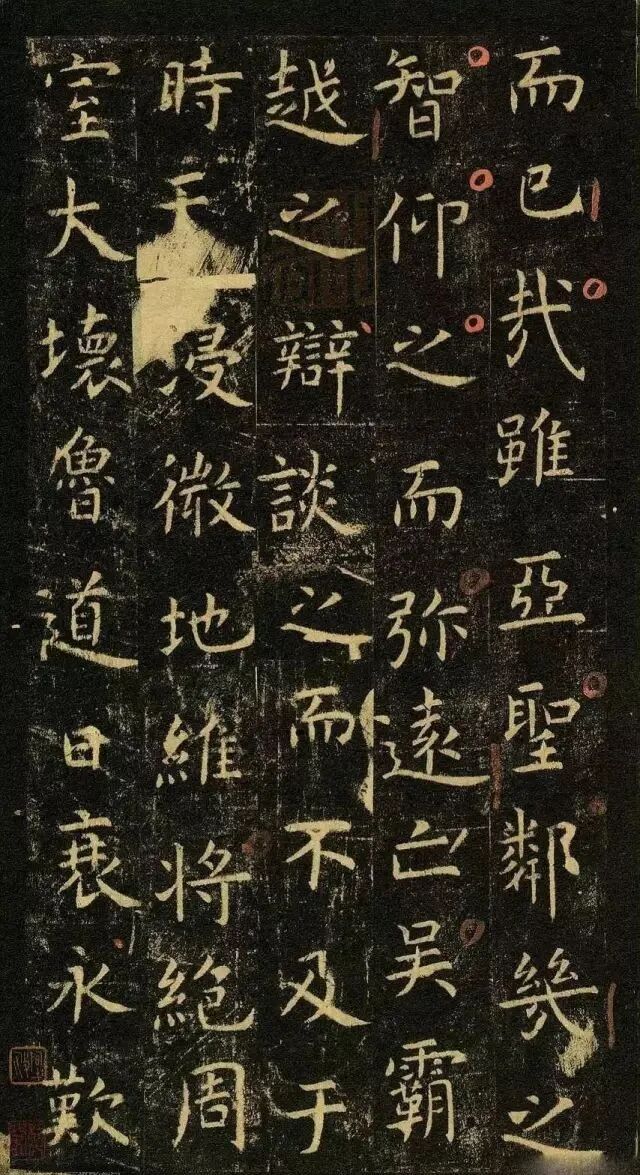 而已哉雖亞聖鄰幾之
智仰之而弥遠亡吴霸
越之辯談之而不及于
時天浸微地維將絶周
室大壞魯道日衰永歎